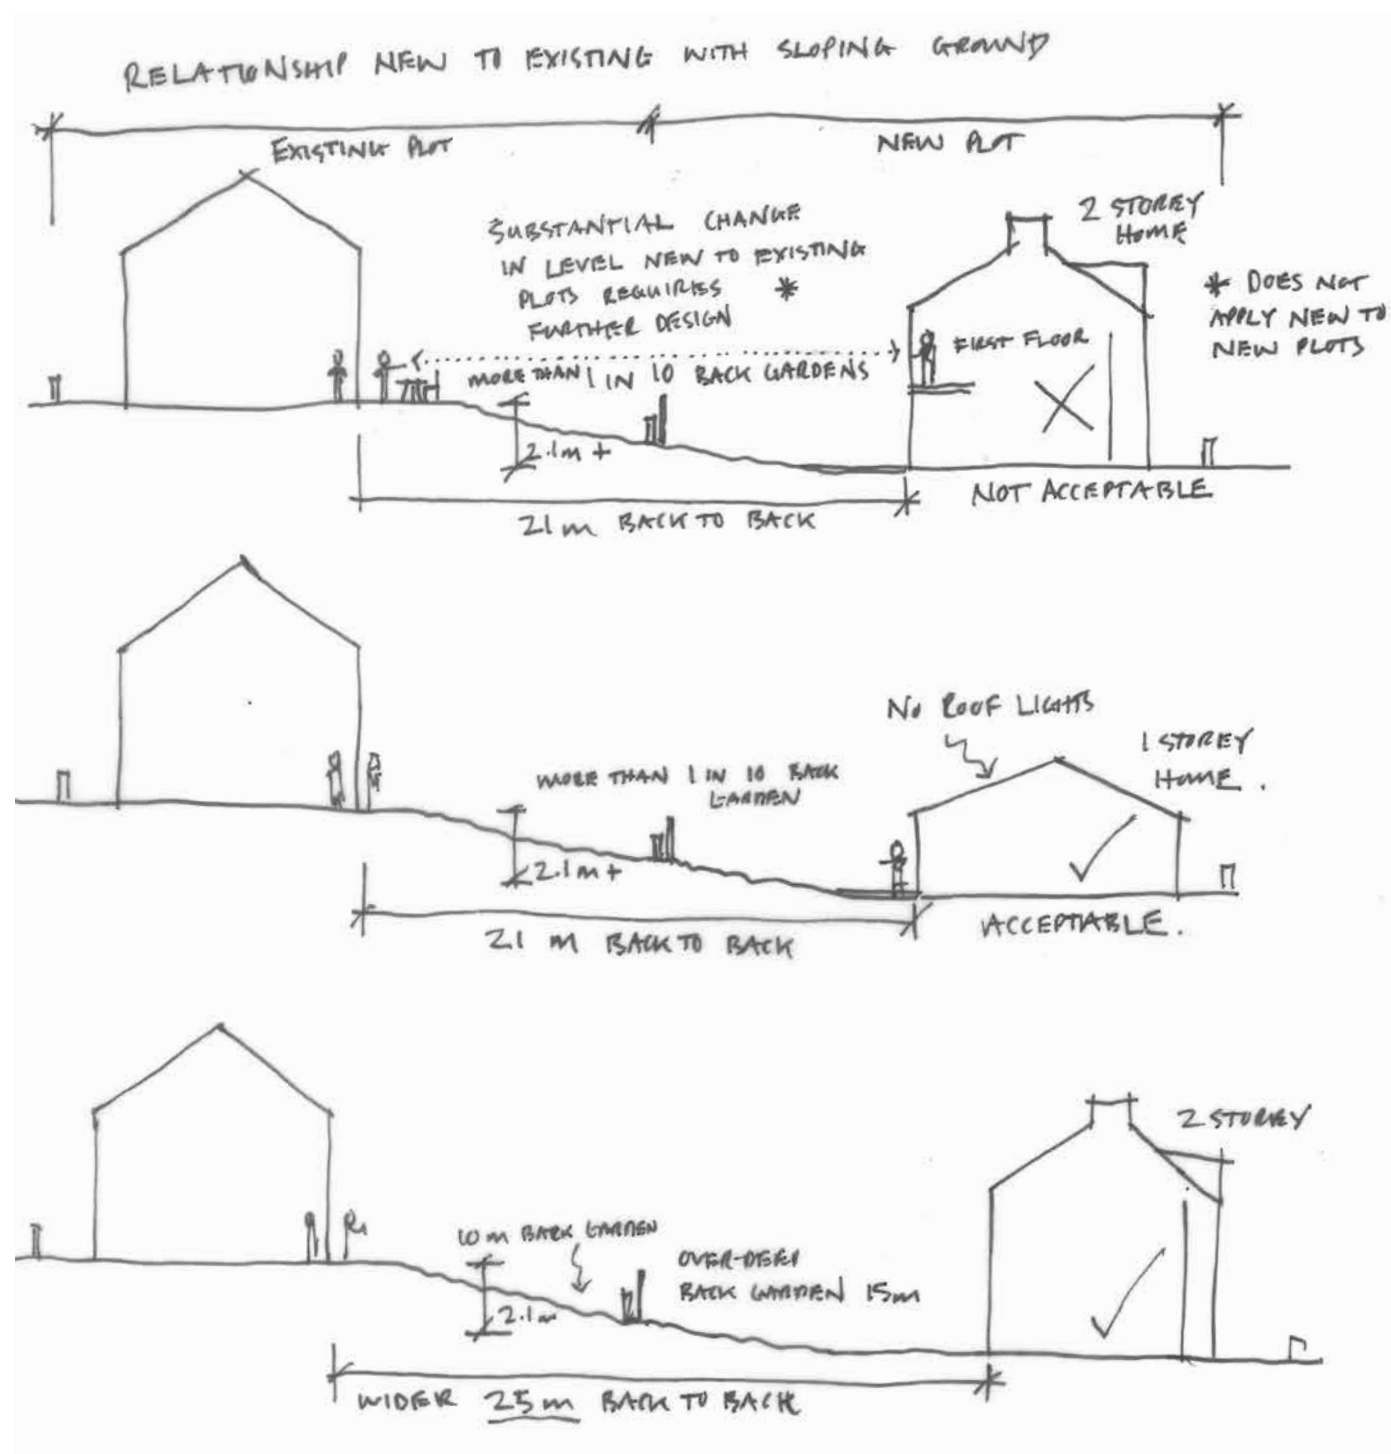 RELATIONSHIP NEW TO EXISTING WITH SLOPING GROUND
EXISTING PLOT
NEW PLOT
SUBSTANTIAL CHANGE
IN LEVEL NEW TO EXISTING
PLOTS REQUIRES *
FURTHER DESIGN
2 STOREY
HOME
* DOES NOT
APPLY NEW TO
NEW PLOTS
FIRST FLOOR
MORE THAN 1 IN 10 BACK GARDENS
2.1m +
21m BACK TO BACK
NOT ACCEPTABLE
NO ROOF LIGHTS
1 STOREY
HOME.
MORE THAN 1 IN 10 BACK
GARDEN
2.1m +
21 m BACK TO BACK
ACCEPTABLE.
2 STOREY
10m BACK GARDEN
OVER-DEEP
BACK GARDEN 15m
2.1m
WIDER 25m BACK TO BACK